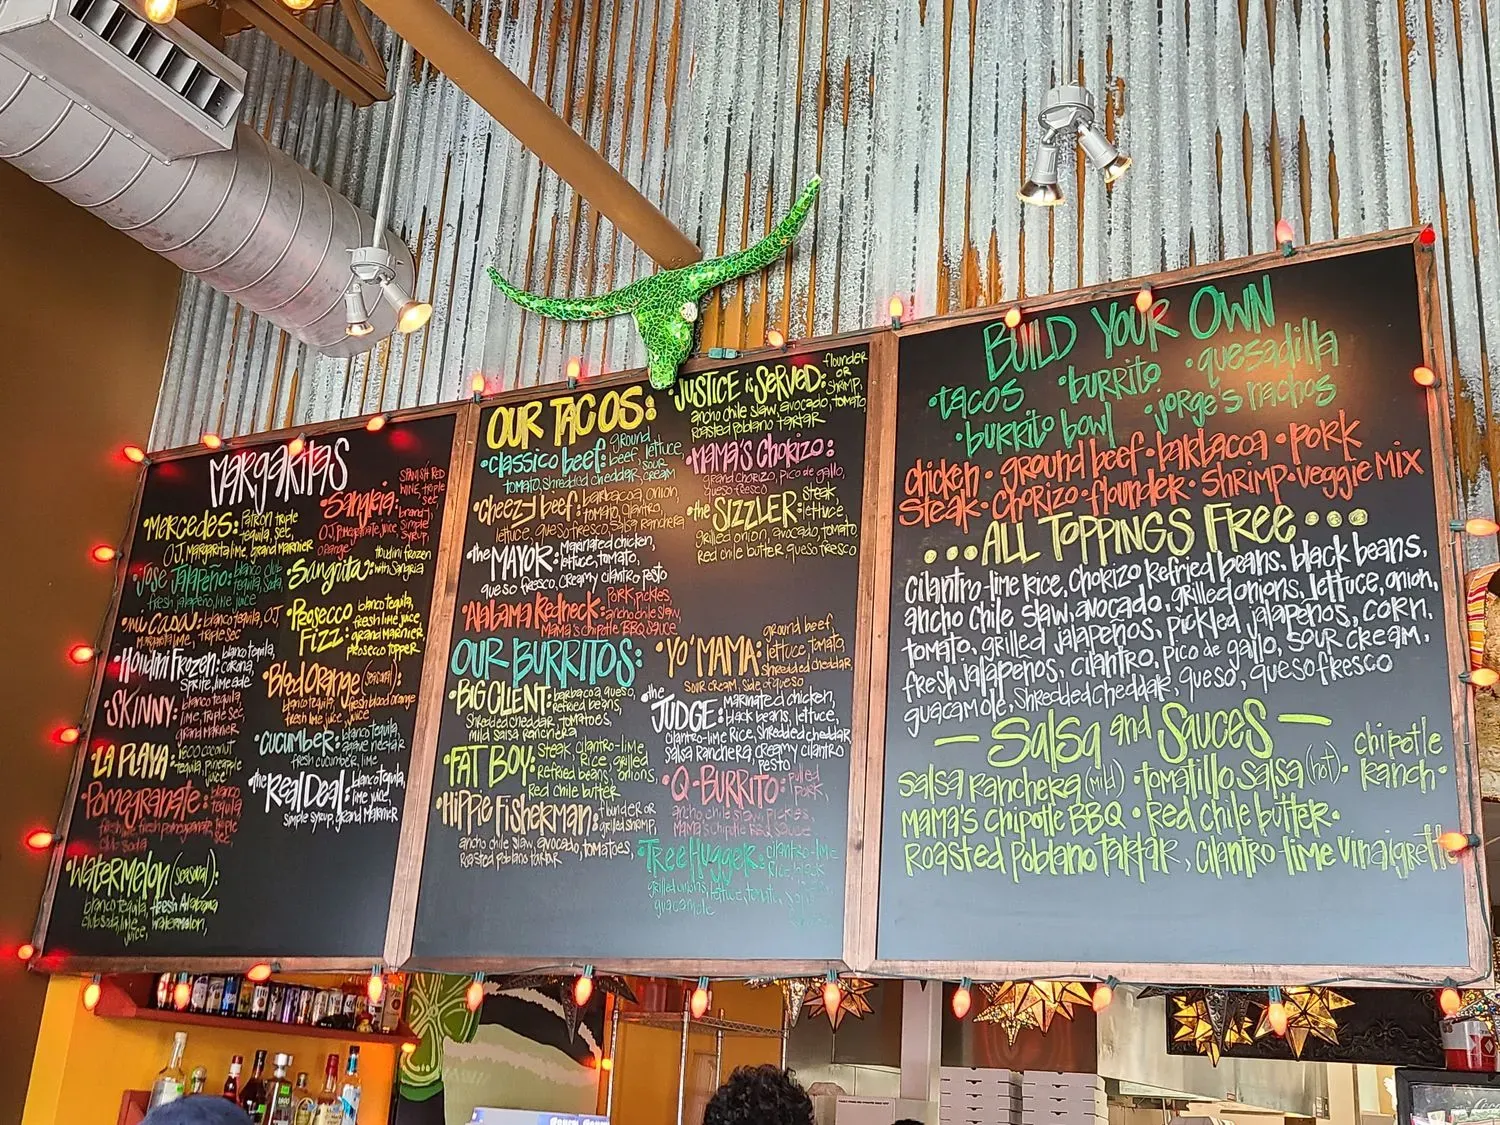 MARGARITAS
• MERCEDES: Patron triple
tequila, sec,
O.J. Margarita lime, grand Marnier
• Jose Jalapeño: blanco club
tequila, soda,
fresh jalapeño, lime juice
• Mi Casa: blanco tequila, O.J.
triple sec
• Houdini Frozen: blanco tequila,
corona,
Sprite, limeade
• SKINNY: blanco tequila,
lime, triple sec,
grand Marnier
• LA PLAYA: 1800 coconut
tequila, pineapple
juice
• Pomegranate: blanco
tequila,
fresh pomegranate, triple
sec,
club soda
• Watermelon (seasonal):
blanco tequila, fresh Alabama
club soda, lime watermelon,
juice,
• Sangria: SPANISH RED
WINE, triple
sec
brandy,
simple
syrup,
orange
• Sangrita: Houdini frozen
with Sangria
• Prosecco Fizz: blanco tequila,
fresh lime juice,
grand Marnier
prosecco topper
• Blood Orange (seasonal):
blanco tequila, fresh blood orange
fresh lime juice juice
• Cucumber: blanco tequila,
agave nectar
fresh cucumber, lime
• the Real Deal: blanco tequila,
lime juice,
simple syrup, grand Marnier
OUR TACOS:
• Classico beef: ground
beef, lettuce,
tomato, shredded cheddar, sour
cream
• Cheezy beef: barbacoa, onion,
tomato, cilantro,
lettuce, queso fresco, salsa ranchera
• the MAYOR: Marinated chicken,
lettuce, tomato,
queso fresco, creamy cilantro pesto
• Alabama Redneck: Pork pickles,
ancho chile slaw,
Mama's Chipotle BBQ sauce
• JUSTICE is SERVED: flounder
or
shrimp,
ancho chile slaw, avocado, tomato,
Roasted poblano tartar
• Mama's Chorizo:
grand chorizo, pico de gallo,
queso fresco
• the SIZZLER: steak,
lettuce,
grilled onion, avocado, tomato,
Red chile butter queso fresco
OUR BURRITOS:
• BIG CLIENT: barbacoa, queso,
refried beans,
shredded cheddar, tomatoes,
mild salsa ranchera
• FAT BOY: Steak, cilantro-lime
Rice, grilled
Refried beans, onions,
Red chile butter
• Hippie Fisherman: flounder or
grilled shrimp,
ancho chile slaw, avocado, tomatoes,
Roasted poblano tartar
• Yo' MAMA: ground beef,
lettuce, tomato,
shredded cheddar,
sour cream, side of queso
• the JUDGE: marinated chicken,
black beans, lettuce,
cilantro-lime Rice, shredded cheddar
salsa Ranchera creamy cilantro
pesto
• Q-Burrito: pulled
pork,
ancho chile slaw, pickles,
Mama's Chipotle BBQ sauce
• Tree Hugger: cilantro-lime
rice, black
grilled onions, lettuce, tomato,
guacamole
BUILD YOUR OWN
• tacos • burrito • quesadilla
• burrito bowl • jorge's nachos
chicken • ground beef • barbacoa • pork
steak • chorizo • flounder • shrimp • veggie mix
... ALL TOPPINGS FREE ...
cilantro-lime rice, chorizo refried beans, black beans,
ancho chile slaw, avocado, grilled onions, lettuce, onion,
tomato, grilled jalapeños, pickled jalapeños, corn,
fresh jalapeños, cilantro, pico de gallo, sour cream,
guacamole, shredded cheddar, queso, queso fresco
— Salsa and Sauces —
salsa ranchera (mild) • tomatillo salsa (hot) • chipotle
ranch •
MAMA'S Chipotle BBQ • Red chile butter •
Roasted Poblano Tartar, cilantro lime vinaigrette